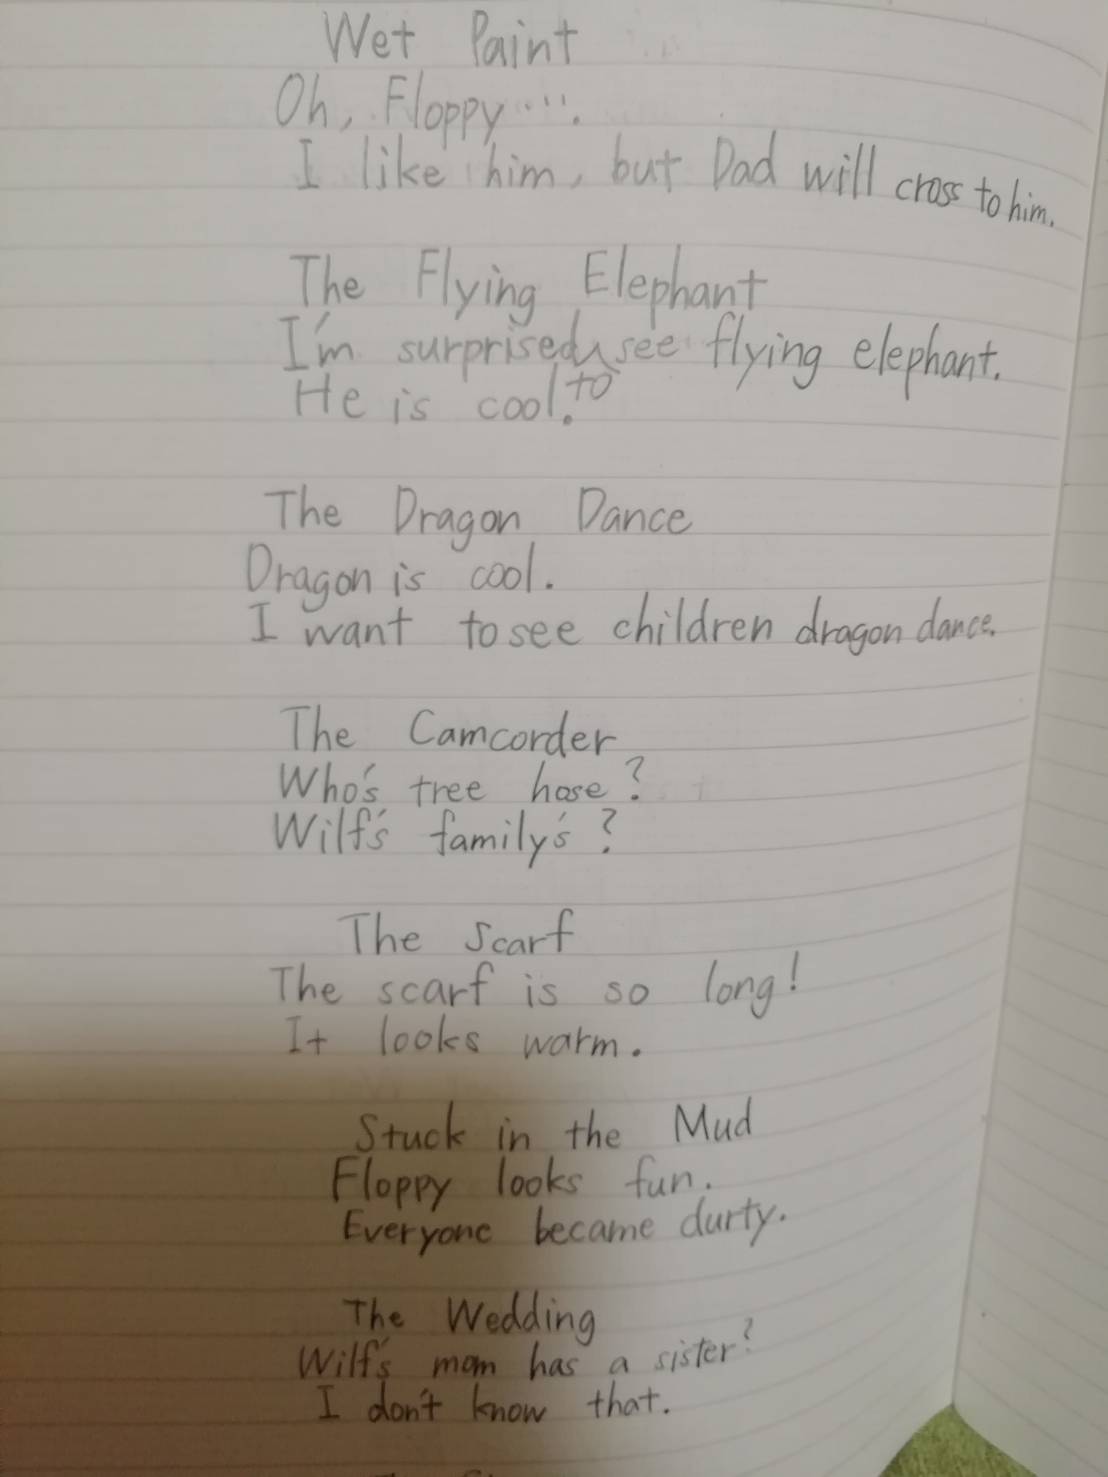 Wet Paint
Oh, Floppy....
I like him, but Dad will cross to him.
The Flying Elephant
I'm surprised to see flying elephant.
He is cool.
The Dragon Dance
Dragon is cool.
I want to see children dragon dance.
The Camcorder
Who's tree hose?
Wilf's family's?
The Scarf
The scarf is so long!
It looks warm.
Stuck in the Mud
Floppy looks fun.
Everyone became durty.
The Wedding
Wilf's mom has a sister?
I don't know that.